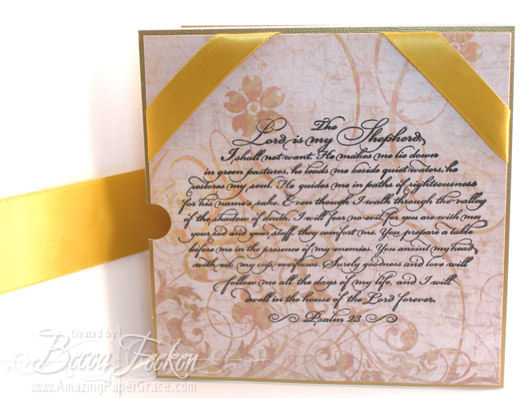 The
Lord is my Shepherd,
I shall not want. He makes me lie down
in green pastures, he leads me beside quiet waters, he
restores my soul. He guides me in paths of righteousness
for his name's sake. Even though I walk through the valley
of the shadow of death, I will fear no evil, for you are with me;
your rod and your staff, they comfort me. You prepare a table
before me in the presence of my enemies. You anoint my head
with oil; my cup overflows. Surely goodness and love will
follow me all the days of my life, and I will
dwell in the house of the Lord forever.
Psalm 23
Created by
Becca Feeken
www.AmazingPaperGrace.com